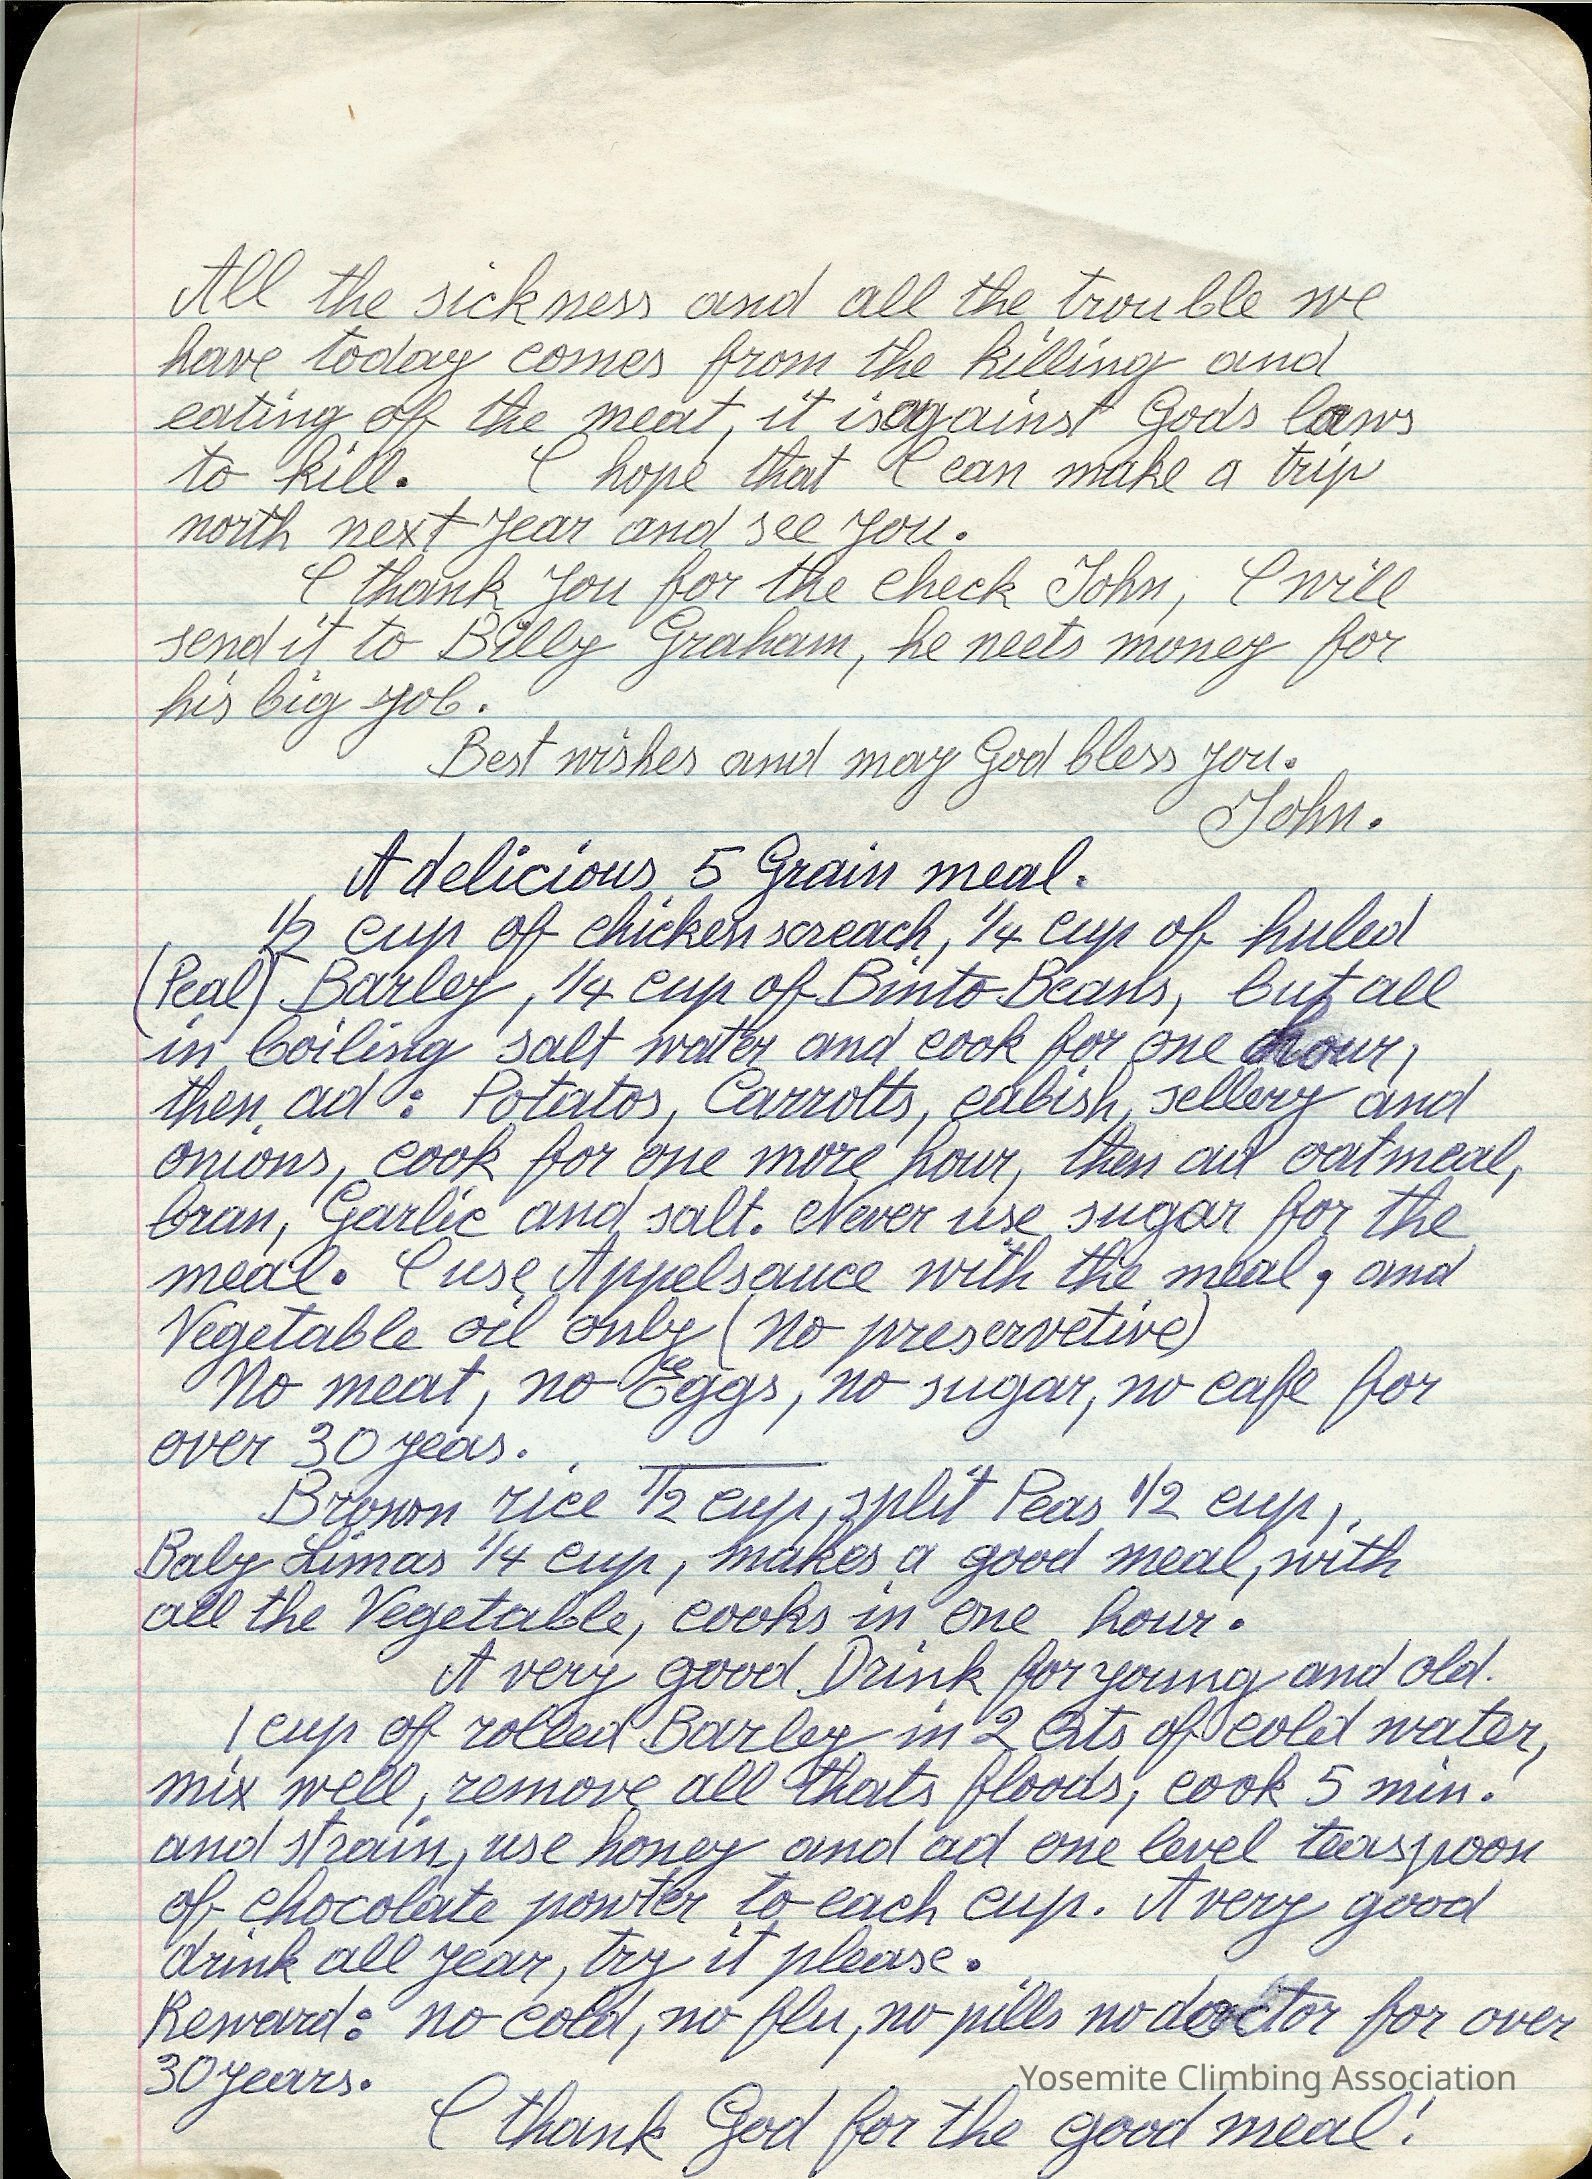 All the sickness and all the trouble we
have today comes from the killing and
eating of the meat, it is against Gods laws
to kill. I hope that I can make a trip
north next year and see you.
I thank you for the check John, I will
send it to Billy Graham, he neets money for
his big yob.
Best wishes and may God bless you.
John.
A delicious 5 Grain meal.
1/2 cup of chicken screach, 1/4 cup of huled
(Peal) Barley, 1/4 cup of Binto Beans, but all
in boiling salt water and cook for one hour,
then ad: Potatos, Carrotts, cabish, sellery and
onions, cook for one more hour, then ad oatmeal,
bran, Garlic and salt. Never use sugar for the
meal. I use Appelsauce with the meal, and
Vegetable oil only (no preservetive)
No meat, no Eggs, no sugar, no cafe for
over 30 yeas.
Brown rice 1/2 cup, split Peas 1/2 cup,
Baby Limas 1/4 cup, makes a good meal, with
all the Vegetable, cooks in one hour.
A very good Drink for young and old.
1 cup of rolled Barley in 2 Qts of cold water,
mix well, remove all thats floods, cook 5 min.
and strain, use honey and ad one level teaspoon
of chocolate powter to each cup. A very good
drink all year, try it please.
Reward: no cold, no flu, no pills no doctor for over
30 years.
Yosemite Climbing Association
I thank God for the good meal!